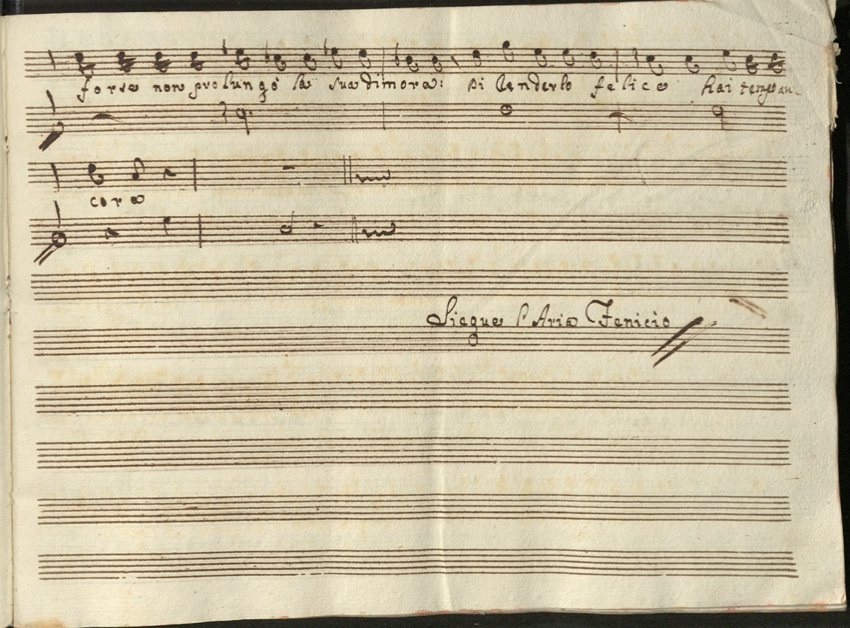 forse non prolungò la sua dimora: Di renderlo felice hai tempo an-
cora
Siegue l'Aria Fenicio